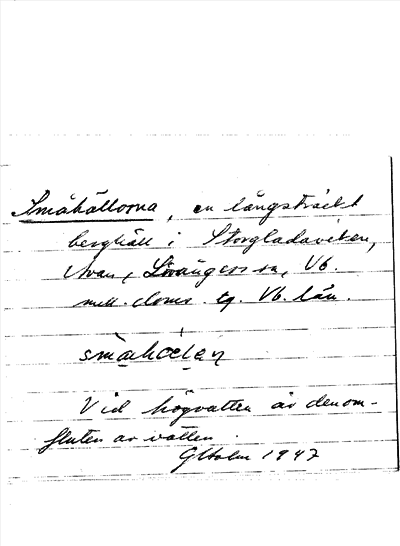 Småhällorna, en långsträckt
berghäll i Storgladaviken,
Avan, Lövångers sn, Vb.
mell. doms. tg. Vb. län.
Vid högvatten är den om-
fluten av vatten.
G Holm 1947